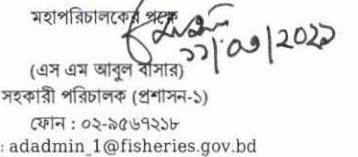 মহাপরিচালকের পক্ষে
(এস এম আবুল বাসার)
সহকারী পরিচালক (প্রশাসন-১)
ফোন : ০২-৯৫৬৭২১৮
: adadmin_1@fisheries.gov.bd